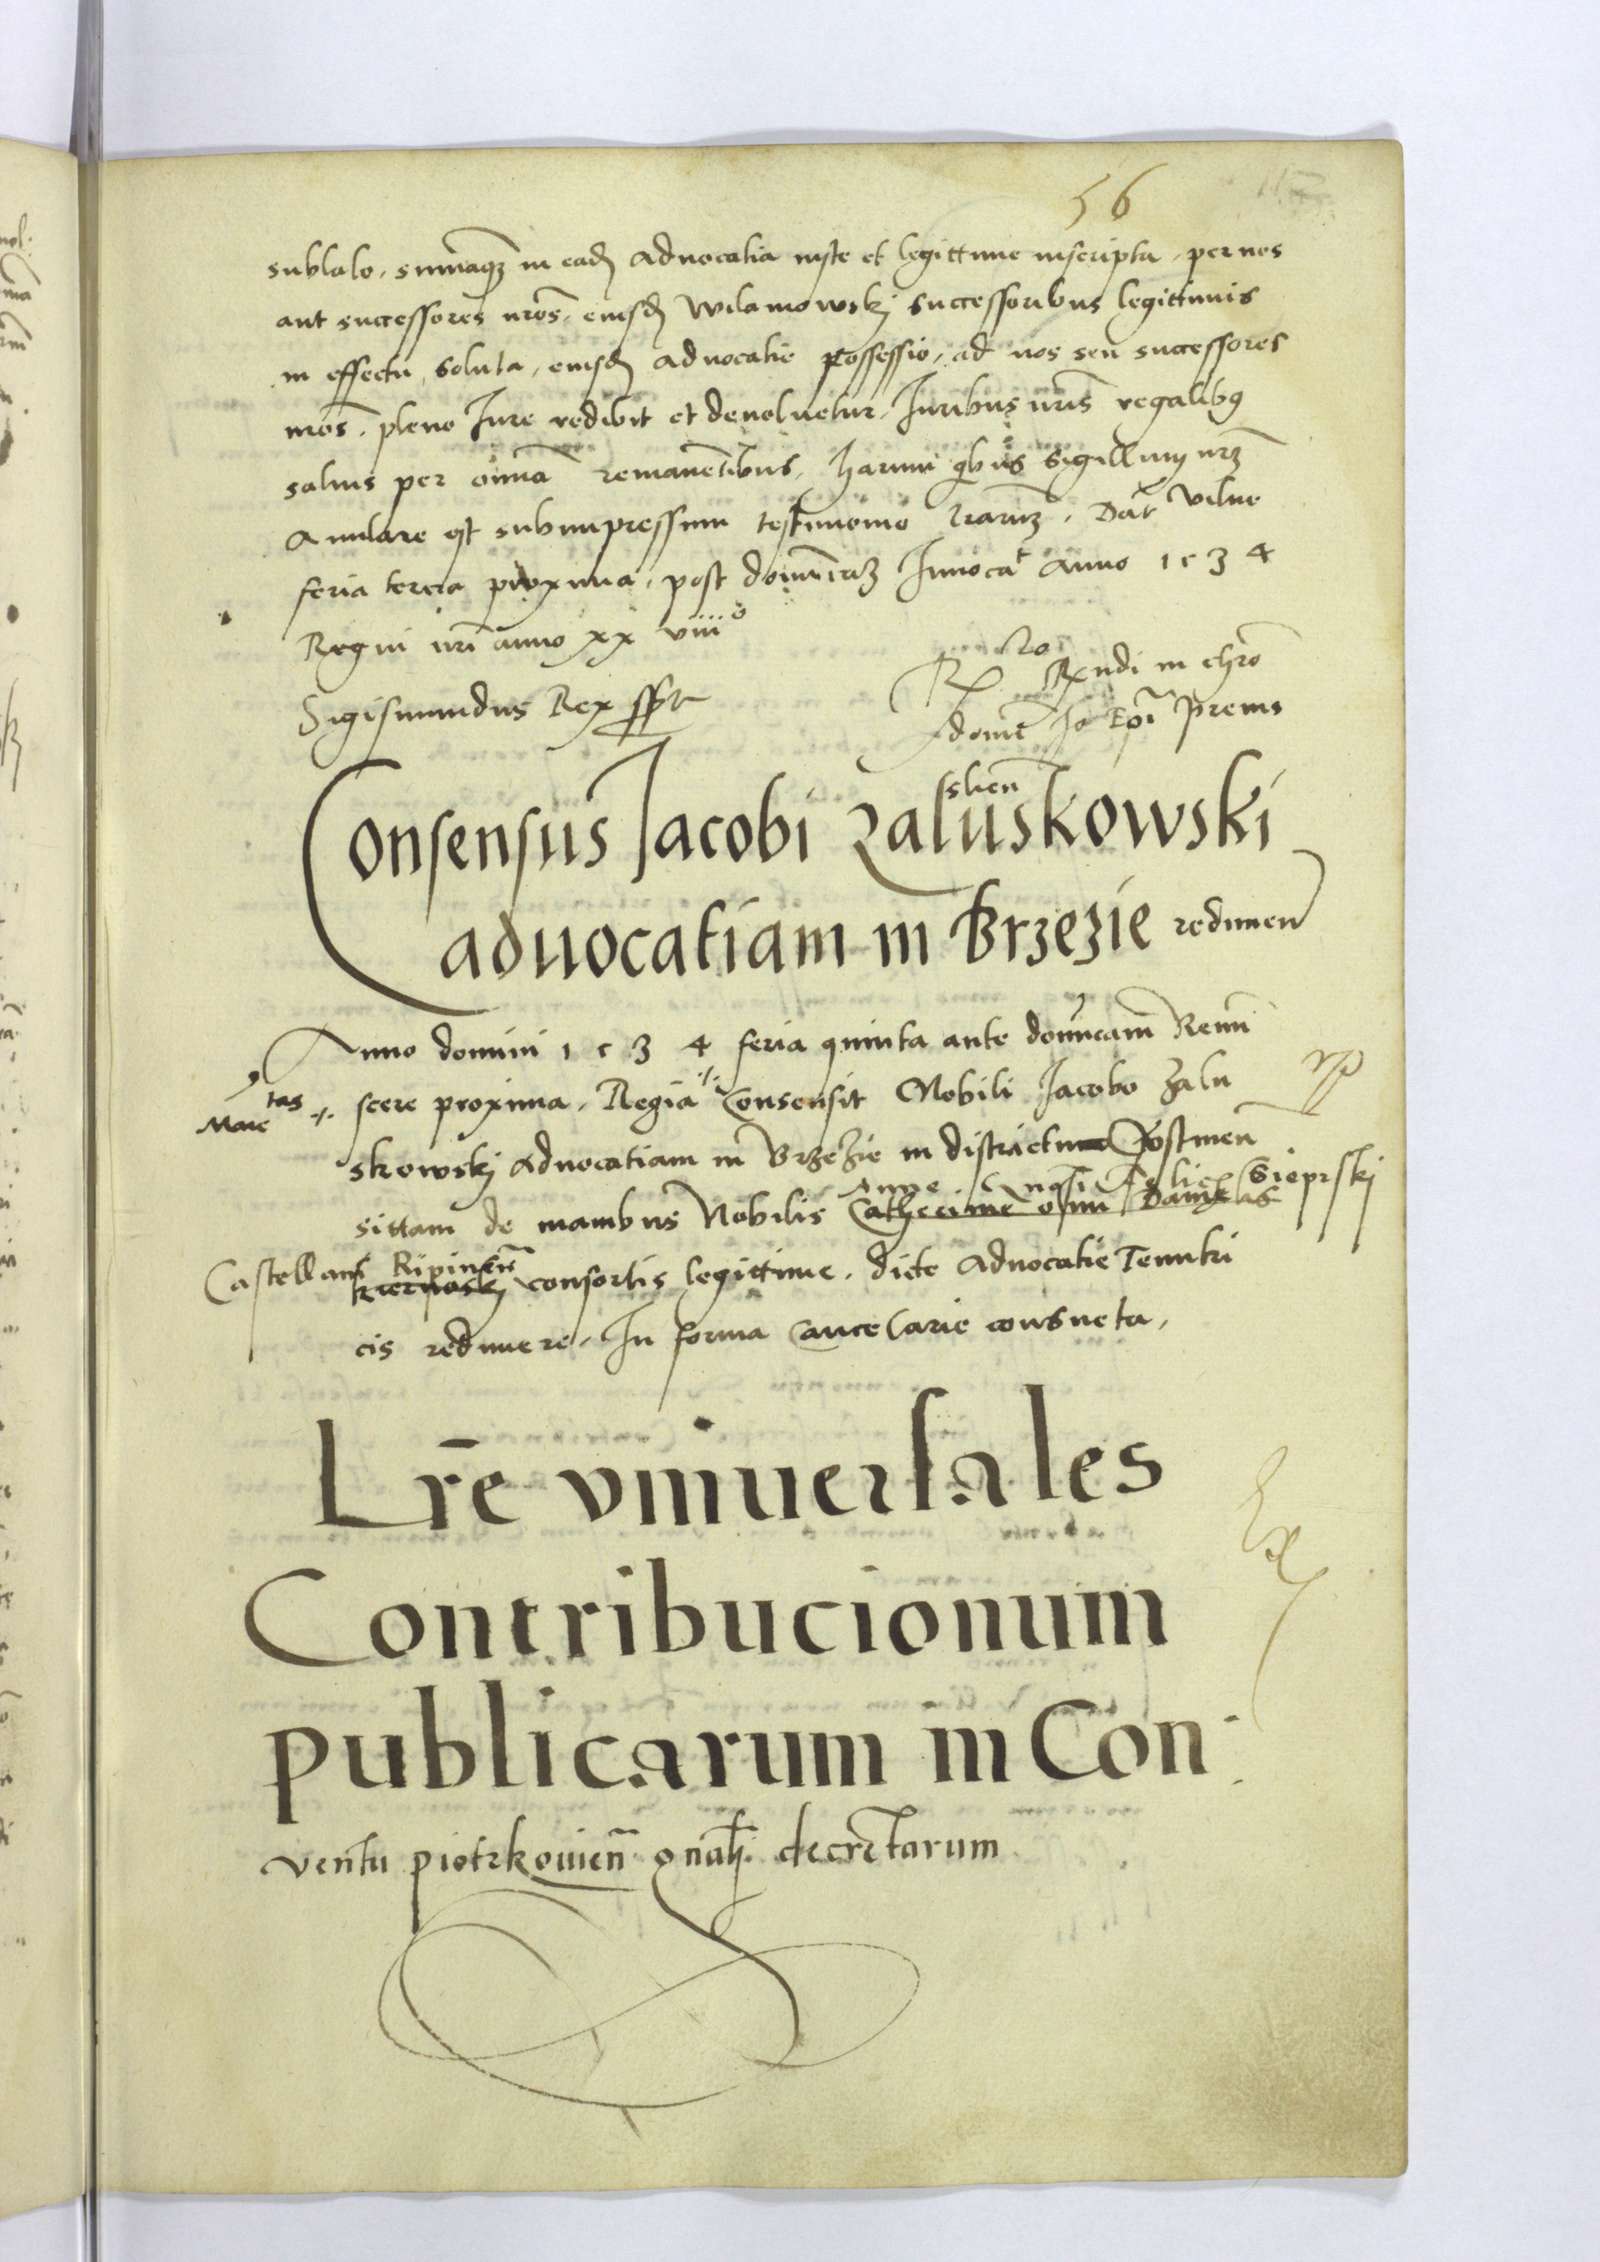 56
sublato, summaqz in eadem advocatia iuste et legittime inscripta, per nos
aut successores nros, eiusdem Wilamowskj successoribus legittimis
in effectu soluta, eiusdem advocatie possessio, ad nos seu successores
nros, pleno Jure redibit et devoluetur, Juribus nris regalibus
salvis per omnia remanentibus, harum qbus sigillum nrm
Anulare est subimpressum testimonio lrarum. Dat Vilne
feria tercia proxima, post dominicam Invocat anno 1534
Regni nri anno xx viiio
Sigismundus Rex sspt
Ro Rxndi in chro
domi Jo Epi Premis
slien
Consensus Jacobi Zaluskowski
advocatiam in Brzezie redimen
Anno domini 1534 feria quinta ante dominicam Remi
scere proxima, Regia Consensit Nobili Jacobo Zalu
Maie tas
skowskj advocatiam in Brzezie in districtu
sittam de manibus Nobilis
Anne Sieprskj
Castellani Ripinen consortis legittime, dicte advocatie Tenutri
cis redimere, In forma Cancelarie consueta,
Lre vniuersales
Contribucionum
publicarum in Con
ventu piotrkovien gnali decretarum